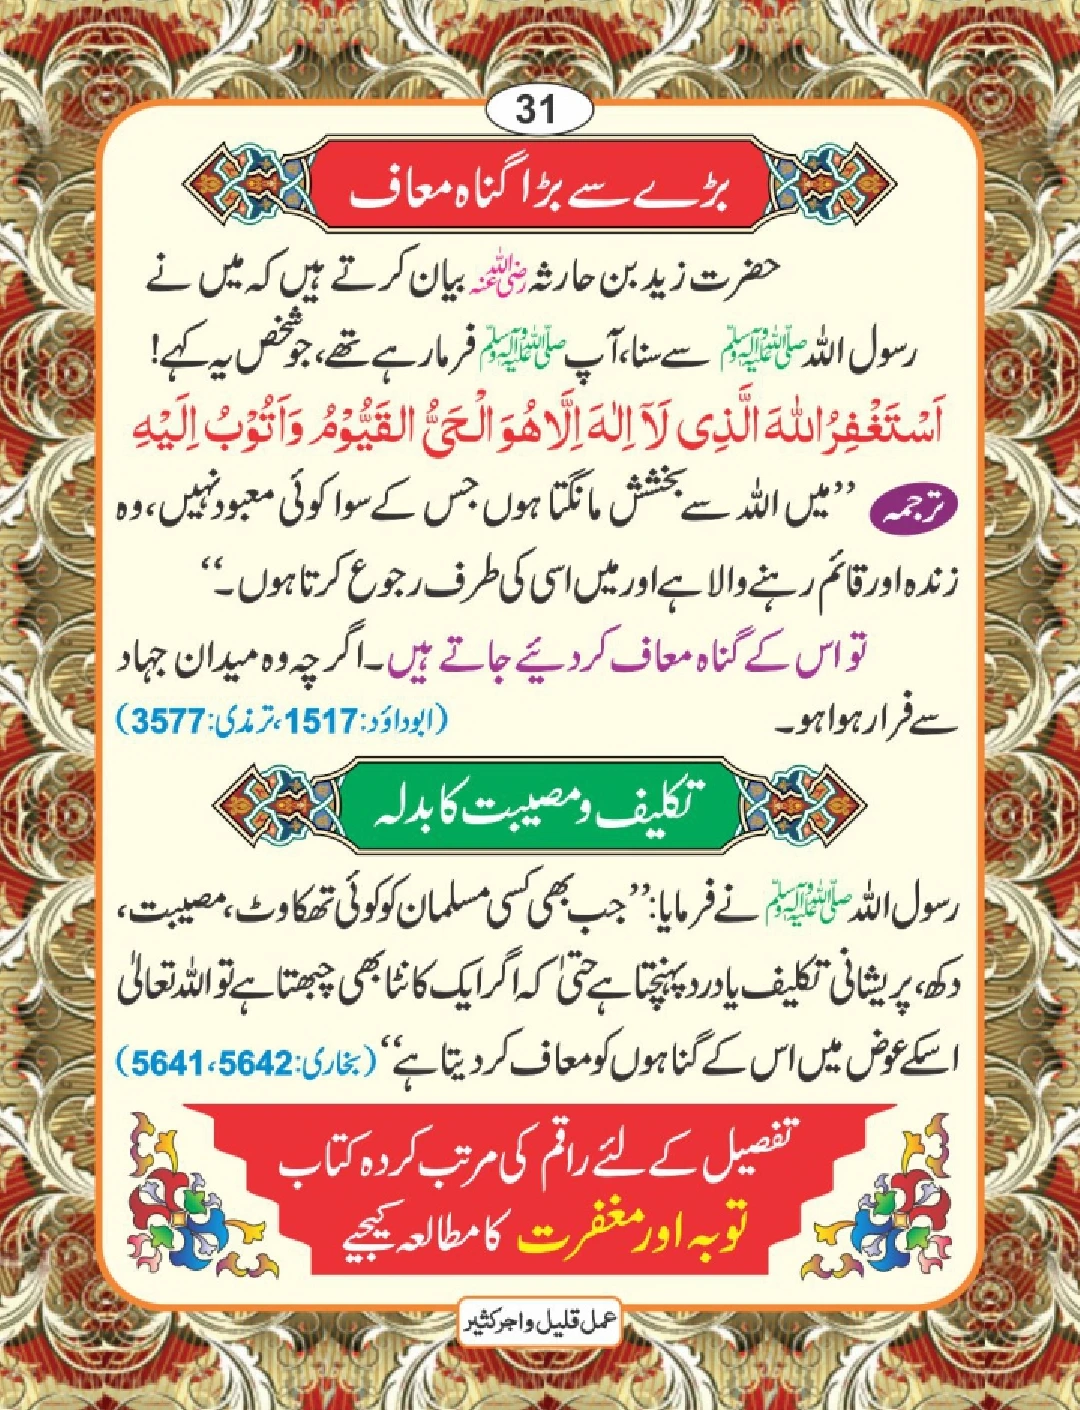 31
بڑے سے بڑا گناہ معاف
حضرت زید بن حارثہ رضی اللہ عنہ بیان کرتے ہیں کہ میں نے
رسول اللہ صلی اللہ علیہ وسلم سے سنا، آپ صلی اللہ علیہ وسلم فرما رہے تھے، جو شخص یہ کہے!
اَسْتَغْفِرُ اللّٰهَ الَّذِی لَآ اِلٰهَ اِلَّا هُوَ الْحَیُّ القَیُّوْمُ وَاَتُوْبُ اِلَیْهِ
ترجمہ ’’میں اللہ سے بخشش مانگتا ہوں جس کے سوا کوئی معبود نہیں، وہ
زندہ اور قائم رہنے والا ہے اور میں اسی کی طرف رجوع کرتا ہوں۔‘‘
تو اس کے گناہ معاف کر دئیے جاتے ہیں۔ اگرچہ وہ میدان جہاد
سے فرار ہوا ہو۔ (ابوداؤد: 1517، ترمذی: 3577)
تکلیف و مصیبت کا بدلہ
رسول اللہ صلی اللہ علیہ وسلم نے فرمایا: ’’جب بھی کسی مسلمان کو کوئی تھکاوٹ، مصیبت،
دکھ، پریشانی تکلیف یا درد پہنچتا ہے حتیٰ کہ اگر ایک کانٹا بھی چبھتا ہے تو اللہ تعالیٰ
اسکے عوض میں اس کے گناہوں کو معاف کر دیتا ہے‘‘ (بخاری: 5641، 5642)
تفصیل کے لئے راقم کی مرتب کردہ کتاب
توبہ اور مغفرت کا مطالعہ کیجیے
عمل قلیل و اجر کثیر